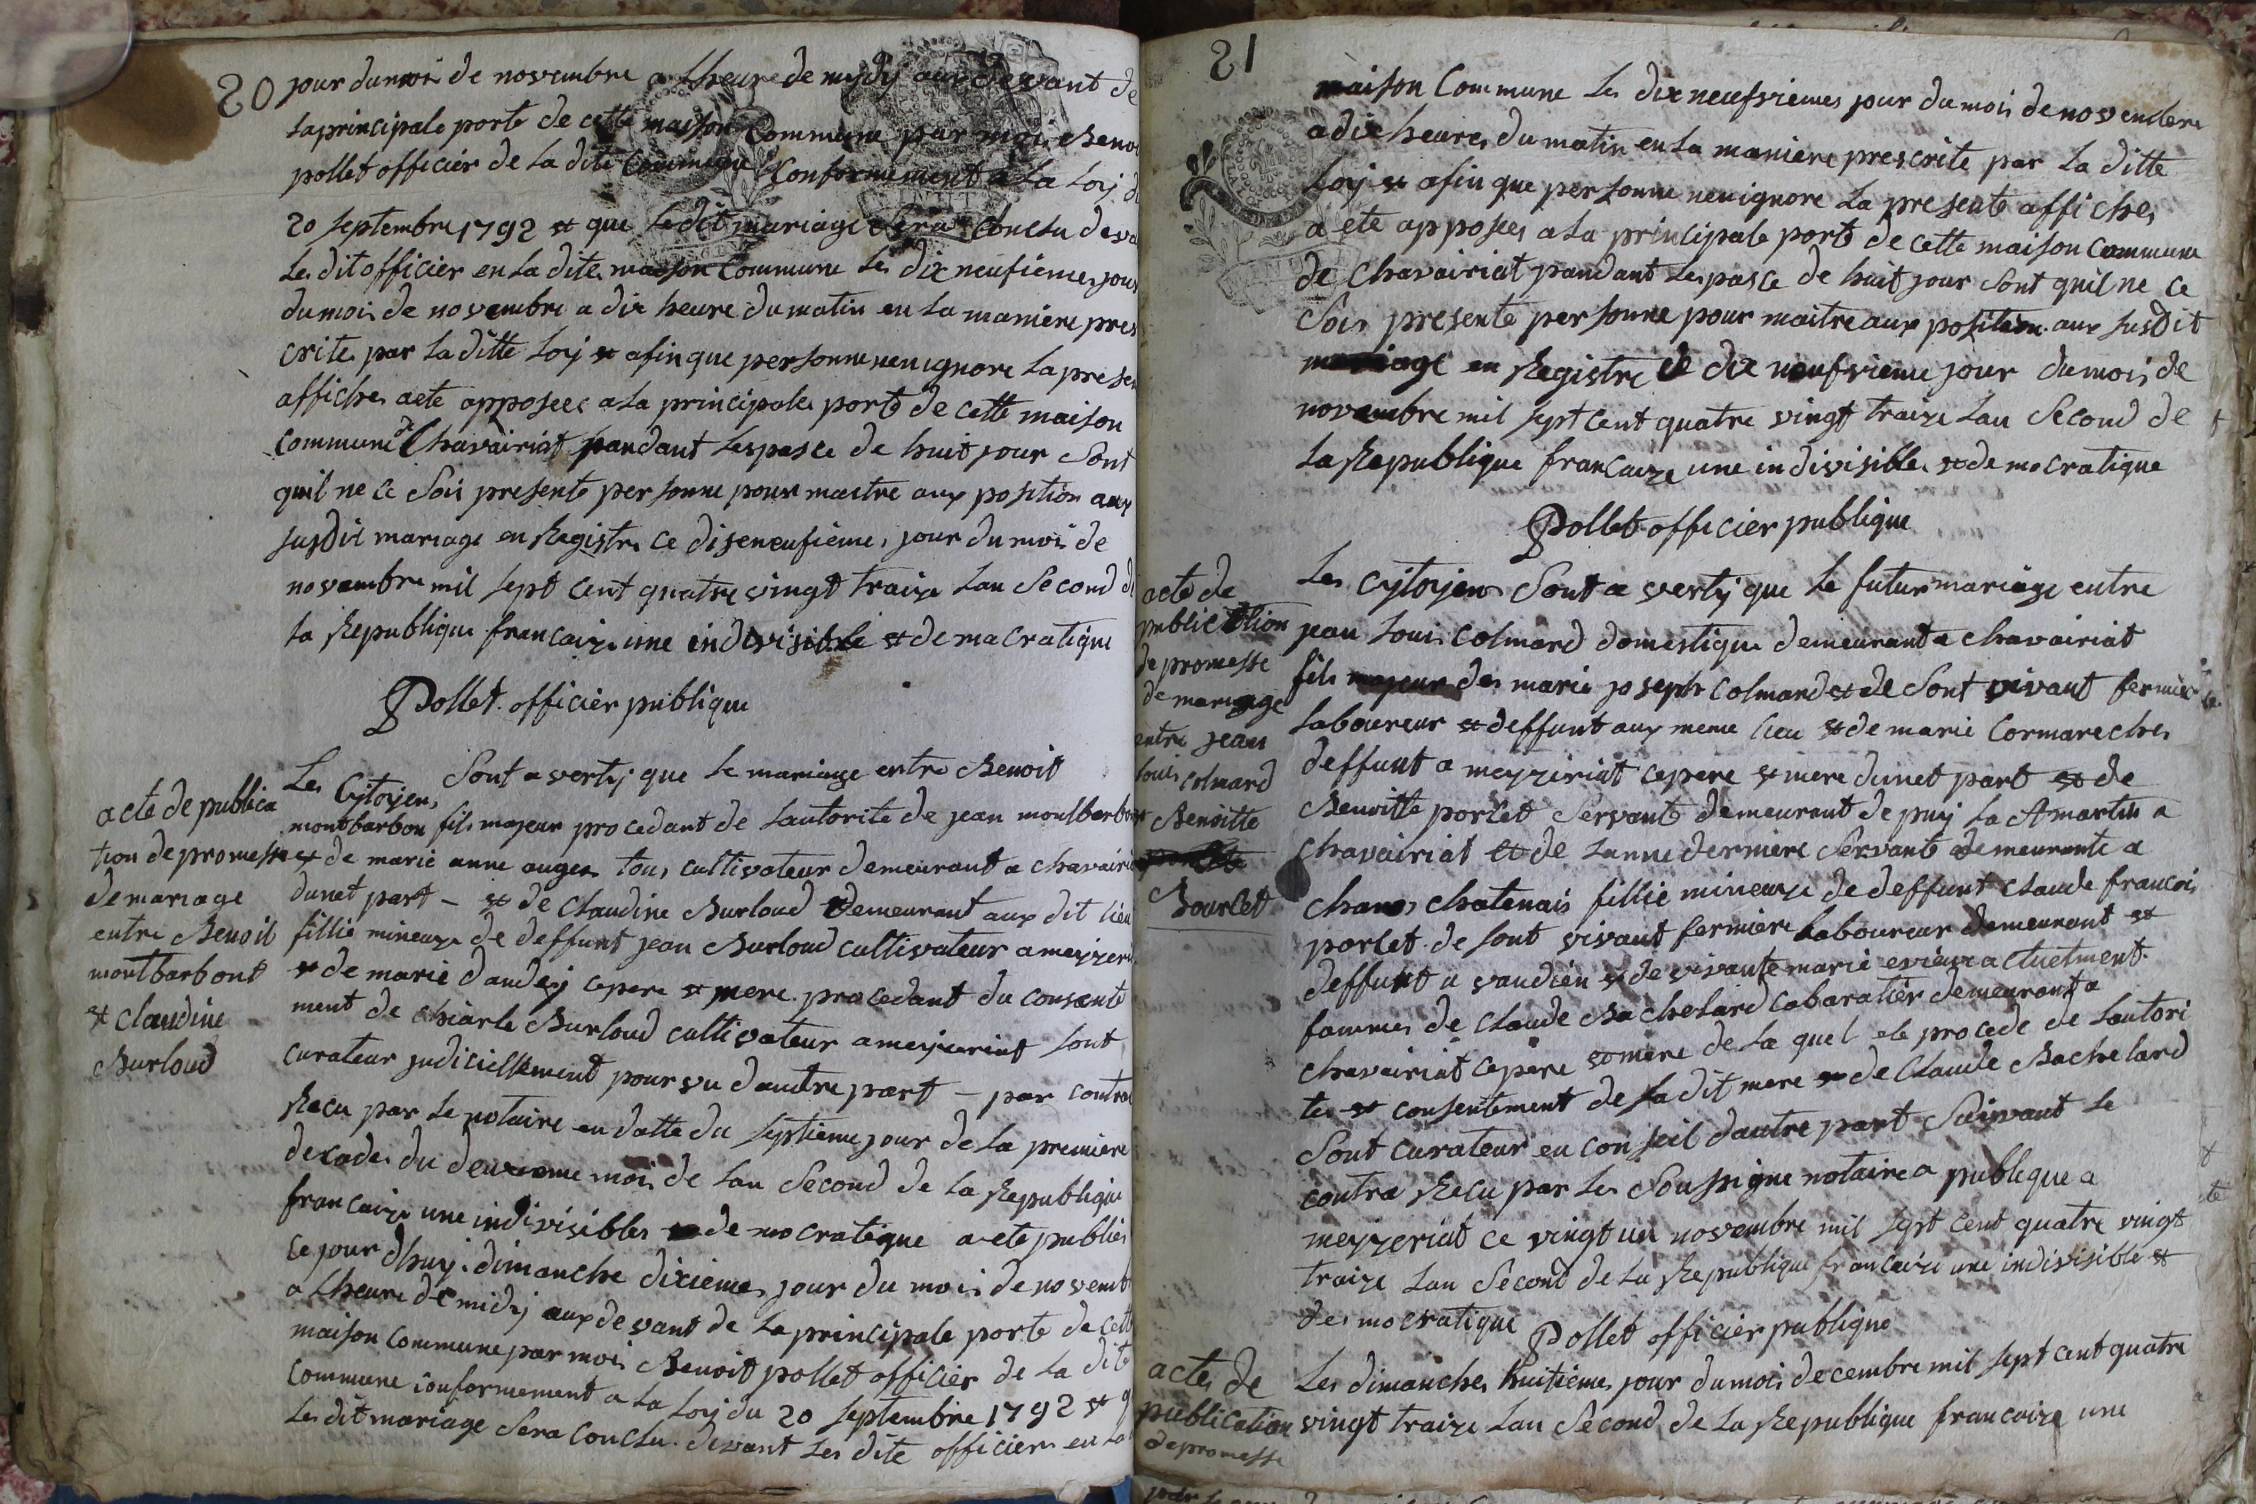 20
jour du moi de novembre a lheure de mydy aux devant de
la principale porte de cette maison Commune par moi Benoi
pollet officier de la dite Commune Conformement a La Loy d
20 septembre 1792 et que le dit mariage sera Conclu deva
Les dit officier en la dite maison Commune Les dix neufiemes jour
du mois de novembre a dix heure du matin en la maniere pres
crite par la ditte Loy et afin que personne nen ignore La presen
affiches a ete apposees a la principales porte de cette maison
commune de Chavairiat pandant lespasce de huit jour Sont
quil ne ce Sois presente personne pour maitre aux position aux
susdit mariage en Registre ce diseneufieme jour du mois de
novembre mil sept cent quatre vingt traize Lan Second d
la Republique francaize une indivisible et de macratique
Pollet officier publique
acte de publica
tion de promesse
de mariage
entre Benoit
montbarbont
et claudine
Burloud
Les Cytoyens Sont a verty que le mariage entre Benoit
montbarbon fils majeur procedant de lautorite de jean moulbarbon
et de marie anne auger tous cultivateur demeurant a chavairia
dunet part - et de Claudine Burloud demeurant aux dit lieu
fillie mineuze de deffunt jean Burloud cultivateur a meyzeri
et de marie dandey cepere et mere procedant du consente
ment de chiarle Burloud cultivateur a meyzeriat sont
curateur judiciellement pour vu dautre part - par contra
Recu par le notaire en datte du septieme jour de la premiere
decades du deuxieme mois de Lan Second de la Republique
francaize une indivisibles et de mo cratique a ete publies
ce jour dhuy dimanche dixiemes jour du mois de novemb
a lheure de midy aux devant de la principale porte de cett
maison commune par moi Benoit pollet officier de la dite
commune conformement a la Loy du 20 septembre 1792 et q
Les dit mariage Sera conclu devant Les dite officier en la
21
maison Commune Les dix neufviemes jour du mois de novembre
a dix heures du matin en la maniere prescrite par La ditte
Loy et afin que personne nen ignore La presente affiches
a ete apposees a la principale porte de cette maison commune
de Chavairiat pandant lespasce de huit jour Sont quil ne ce
Sois presente personne pour maitre aux position aux susdit
mariage en Registre ce dix neufvieme jour du mois de
novembre mil sept cent quatre vingt traize Lan Second de
La Republique francaize une indivisibles et de mocratique
Pollet officier publique
acte de
publication
de promesse
de mariage
entre jean
louis colmard
et Benoitte
Bourcet
Les Cytoyens Sont a verty que Le futur mariage entre
jean Louis Colmard domestique demeurant a chavairiat
fils majeur des marie joseph Colmard et de Sont vivant fermier
Laboureur et deffunt aux meme lieu et de marie Cormareches
deffunt a meyzeriat cepere et mere dunet part et de
Benoitte porcet Servante demeurant de puy La st martin a
chavairiat et de Lanne derniere Servante demeurante a
chanos chatenais fillie mineuze de deffunt Claude francois
porcet de sont vivant fermiere Laboureur demeurant et
deffunt a vandien et de vivante marie actuelment
fammes de Claude Bachelard cabaratier demeurant a
chavairiat cepere et mere de la quel ele procede de Lautori
tes et consentement de sa dit mere et de Claude Bachelard
Sont curateur en conseil dautre part Suivant le
contra Recu par Les Soussigne notaire a publique a
meyzeriat ce vingt un novembre mil sept cent quatre vingt
traize Lan Second de La Republique francaize une indivisible et
des mocratique Pollet officier publique
actes de
publication
de promesse
Les dimanches huitiemes jour du mois decembre mil sept cent quatre
vingt traize Lan Second de La Republique francaize une